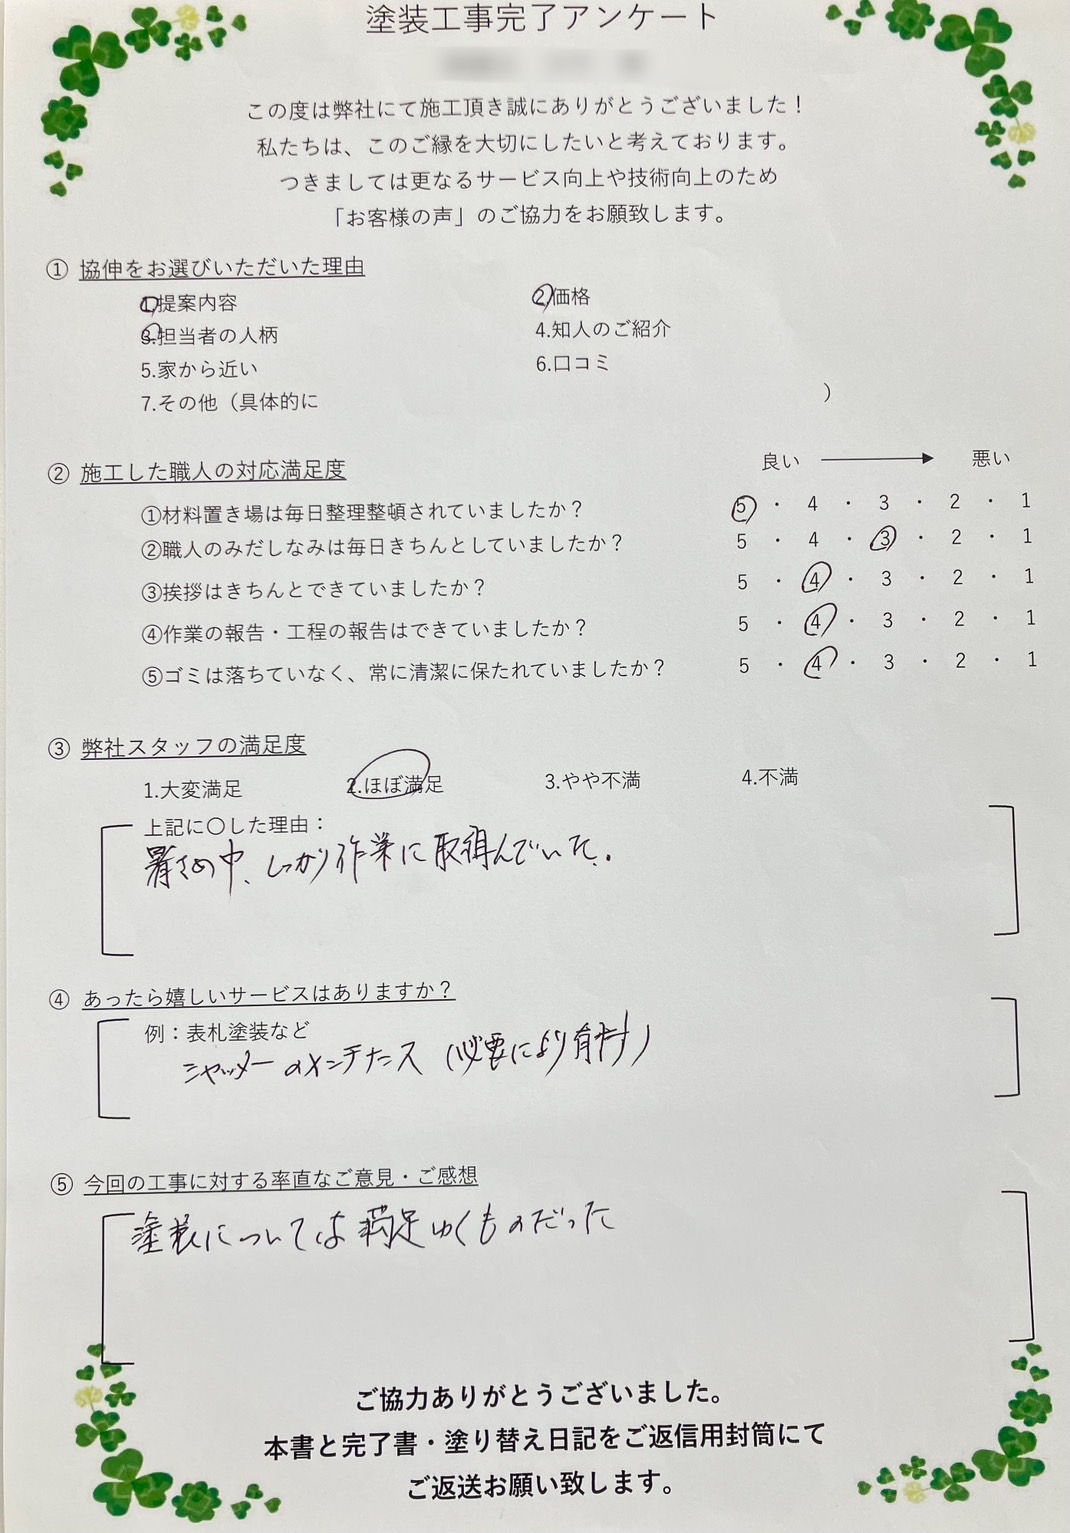 塗装工事完了アンケート
この度は弊社にて施工頂き誠にありがとうございました！
私たちは、このご縁を大切にしたいと考えております。
つきましては更なるサービス向上や技術向上のため
「お客様の声」のご協力をお願致します。
① 協伸をお選びいただいた理由
1.提案内容 2.価格
3.担当者の人柄 4.知人のご紹介
5.家から近い 6.口コミ
7.その他（具体的に ）
② 施工した職人の対応満足度 良い → 悪い
①材料置き場は毎日整理整頓されていましたか？ 5 ・ 4 ・ 3 ・ 2 ・ 1
②職人のみだしなみは毎日きちんとしていましたか？ 5 ・ 4 ・ 3 ・ 2 ・ 1
③挨拶はきちんとできていましたか？ 5 ・ 4 ・ 3 ・ 2 ・ 1
④作業の報告・工程の報告はできていましたか？ 5 ・ 4 ・ 3 ・ 2 ・ 1
⑤ゴミは落ちていなく、常に清潔に保たれていましたか？ 5 ・ 4 ・ 3 ・ 2 ・ 1
③ 弊社スタッフの満足度
1.大変満足 2.ほぼ満足 3.やや不満 4.不満
上記に〇した理由：
暑さの中、しっかり作業に取組んでいた。
④ あったら嬉しいサービスはありますか？
例：表札塗装など
シャッターのメンテナンス（必要により有料）
⑤ 今回の工事に対する率直なご意見・ご感想
塗装については満足ゆくものだった
ご協力ありがとうございました。
本書と完了書・塗り替え日記をご返信用封筒にて
ご返送お願い致します。